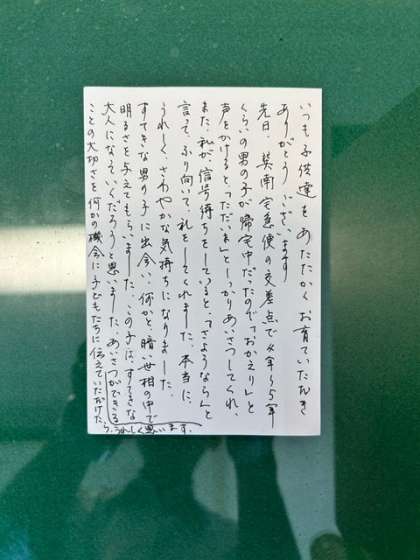 いつも子供達をあたたかくお育ていただき
ありがとうございます
先日、箕南宅急便の交差点で4年～5年
くらいの男の子が帰宅中だったので「おかえり」と
声をかけると、「ただいま」としっかりあいさつしてくれ、
また、私が信号待ちをしていると、「さようなら」と
言って、ふり向いて、礼をしてくれました。本当に、
うれしく、さわやかな気持ちになりました。
すてきな男の子に出会い、何かと、暗い世相の中で
明るさを与えてもらいました。この子は、すてきな
大人になっていくだろうと思いました。あいさつができる
ことの大切さを何かの機会に子どもたちに伝えていただけた
ら、うれしく思います。